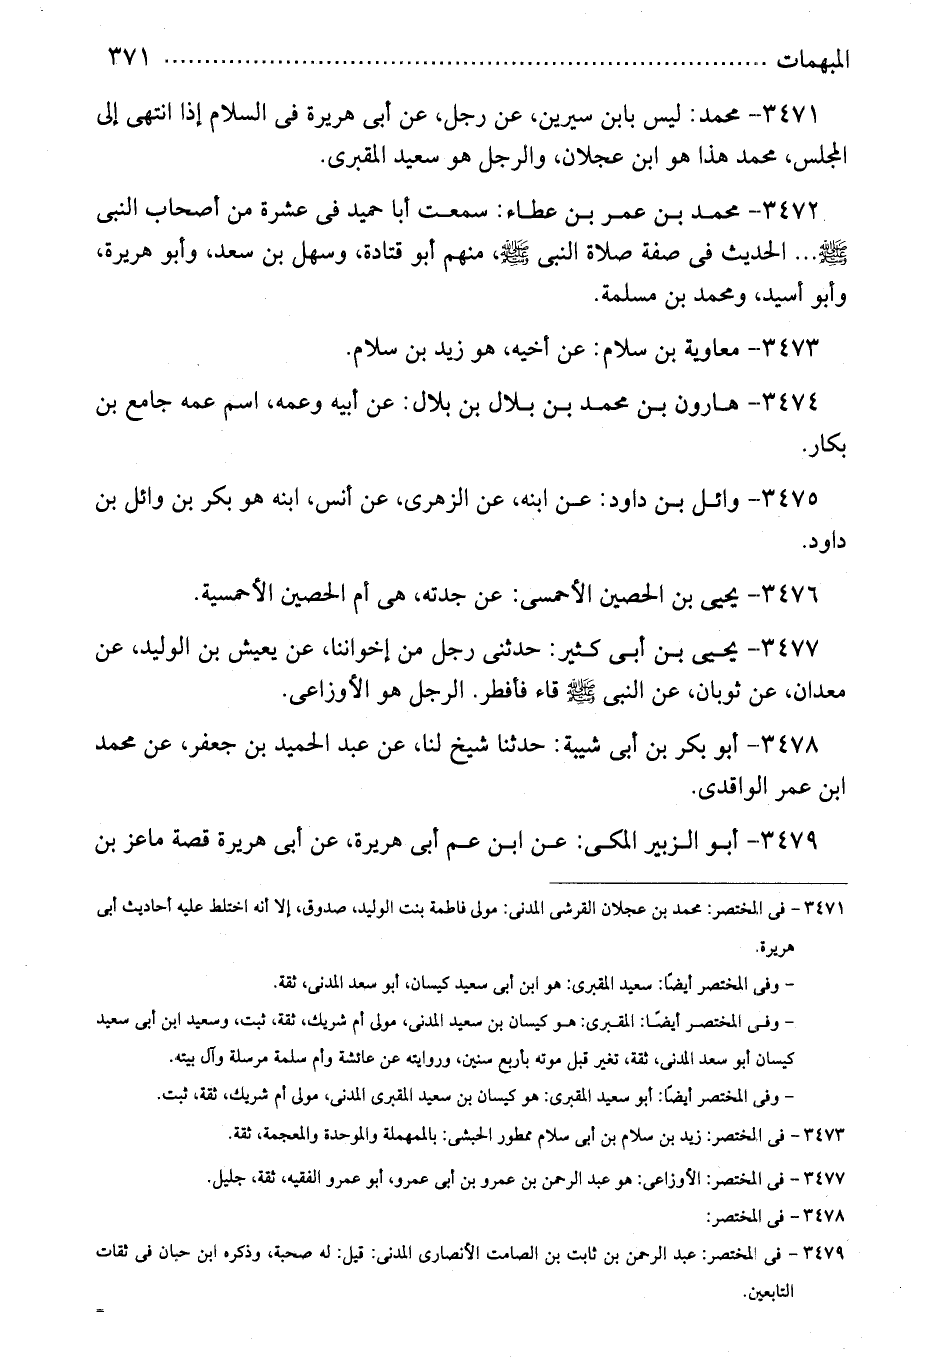 المبهمات ........................................................................... ٣٧١
٣٤٧١- محمد: ليس بابن سيرين، عن رجل، عن أبى هريرة فى السلام إذا انتهى إلى
المجلس، محمد هذا هو ابن عجلان، والرجل هو سعيد المقبرى.
٣٤٧٢- محمد بن عمر بن عطاء: سمعت أبا حميد فى عشرة من أصحاب النبى
ﷺ... الحديث فى صفة صلاة النبى ﷺ، منهم أبو قتادة، وسهل بن سعد، وأبو هريرة،
وأبو أسيد، ومحمد بن مسلمة.
٣٤٧٣- معاوية بن سلام: عن أخيه، هو زيد بن سلام.
٣٤٧٤- هارون بن محمد بن بلال بن بلال: عن أبيه وعمه، اسم عمه جامع بن
بكار.
٣٤٧٥- وائل بن داود: عن ابنه، عن الزهرى، عن أنس، ابنه هو بكر بن وائل بن
داود.
٣٤٧٦- يحيى بن الحصين الأحمسى: عن جدته، هى أم الحصين الأحمسية.
٣٤٧٧- يحيى بن أبى كثير: حدثنى رجل من إخواننا، عن يعيش بن الوليد، عن
معدان، عن ثوبان، عن النبى ﷺ قاء فأفطر. الرجل هو الأوزاعى.
٣٤٧٨- أبو بكر بن أبى شيبة: حدثنا شيخ لنا، عن عبد الحميد بن جعفر، عن محمد
ابن عمر الواقدى.
٣٤٧٩- أبو الزبير المكى: عن ابن عم أبى هريرة، عن أبى هريرة قصة ماعز بن
٣٤٧١- فى المختصر: محمد بن عجلان القرشى المدنى: مولى فاطمة بنت الوليد، صدوق، إلا أنه اختلط عليه أحاديث أبى
هريرة.
- وفى المختصر أيضًا: سعيد المقبرى: هو ابن أبى سعيد كيسان، أبو سعد المدنى، ثقة.
- وفى المختصر أيضًا: المقبرى: هو كيسان بن سعيد المدنى، مولى أم شريك، ثقة، ثبت، وسعيد ابن أبى سعيد
كيسان أبو سعد المدنى، ثقة، تغير قبل موته بأربع سنين، وروايته عن عائشة وأم سلمة مرسلة وآل بيته.
- وفى المختصر أيضًا: أبو سعيد المقبرى: هو كيسان بن سعيد المقبرى المدنى، مولى أم شريك، ثقة، ثبت.
٣٤٧٣- فى المختصر: زيد بن سلام بن أبى سلام ممطور الحبشى: بالمهملة والموحدة والمعجمة، ثقة.
٣٤٧٧- فى المختصر: الأوزاعى: هو عبد الرحمن بن عمرو بن أبى عمرو، أبو عمرو الفقيه، ثقة، جليل.
٣٤٧٨- فى المختصر:
٣٤٧٩- فى المختصر: عبد الرحمن بن ثابت بن الصامت الأنصارى المدنى: قيل: له صحبة، وذكره ابن حبان فى ثقات
التابعين.
=